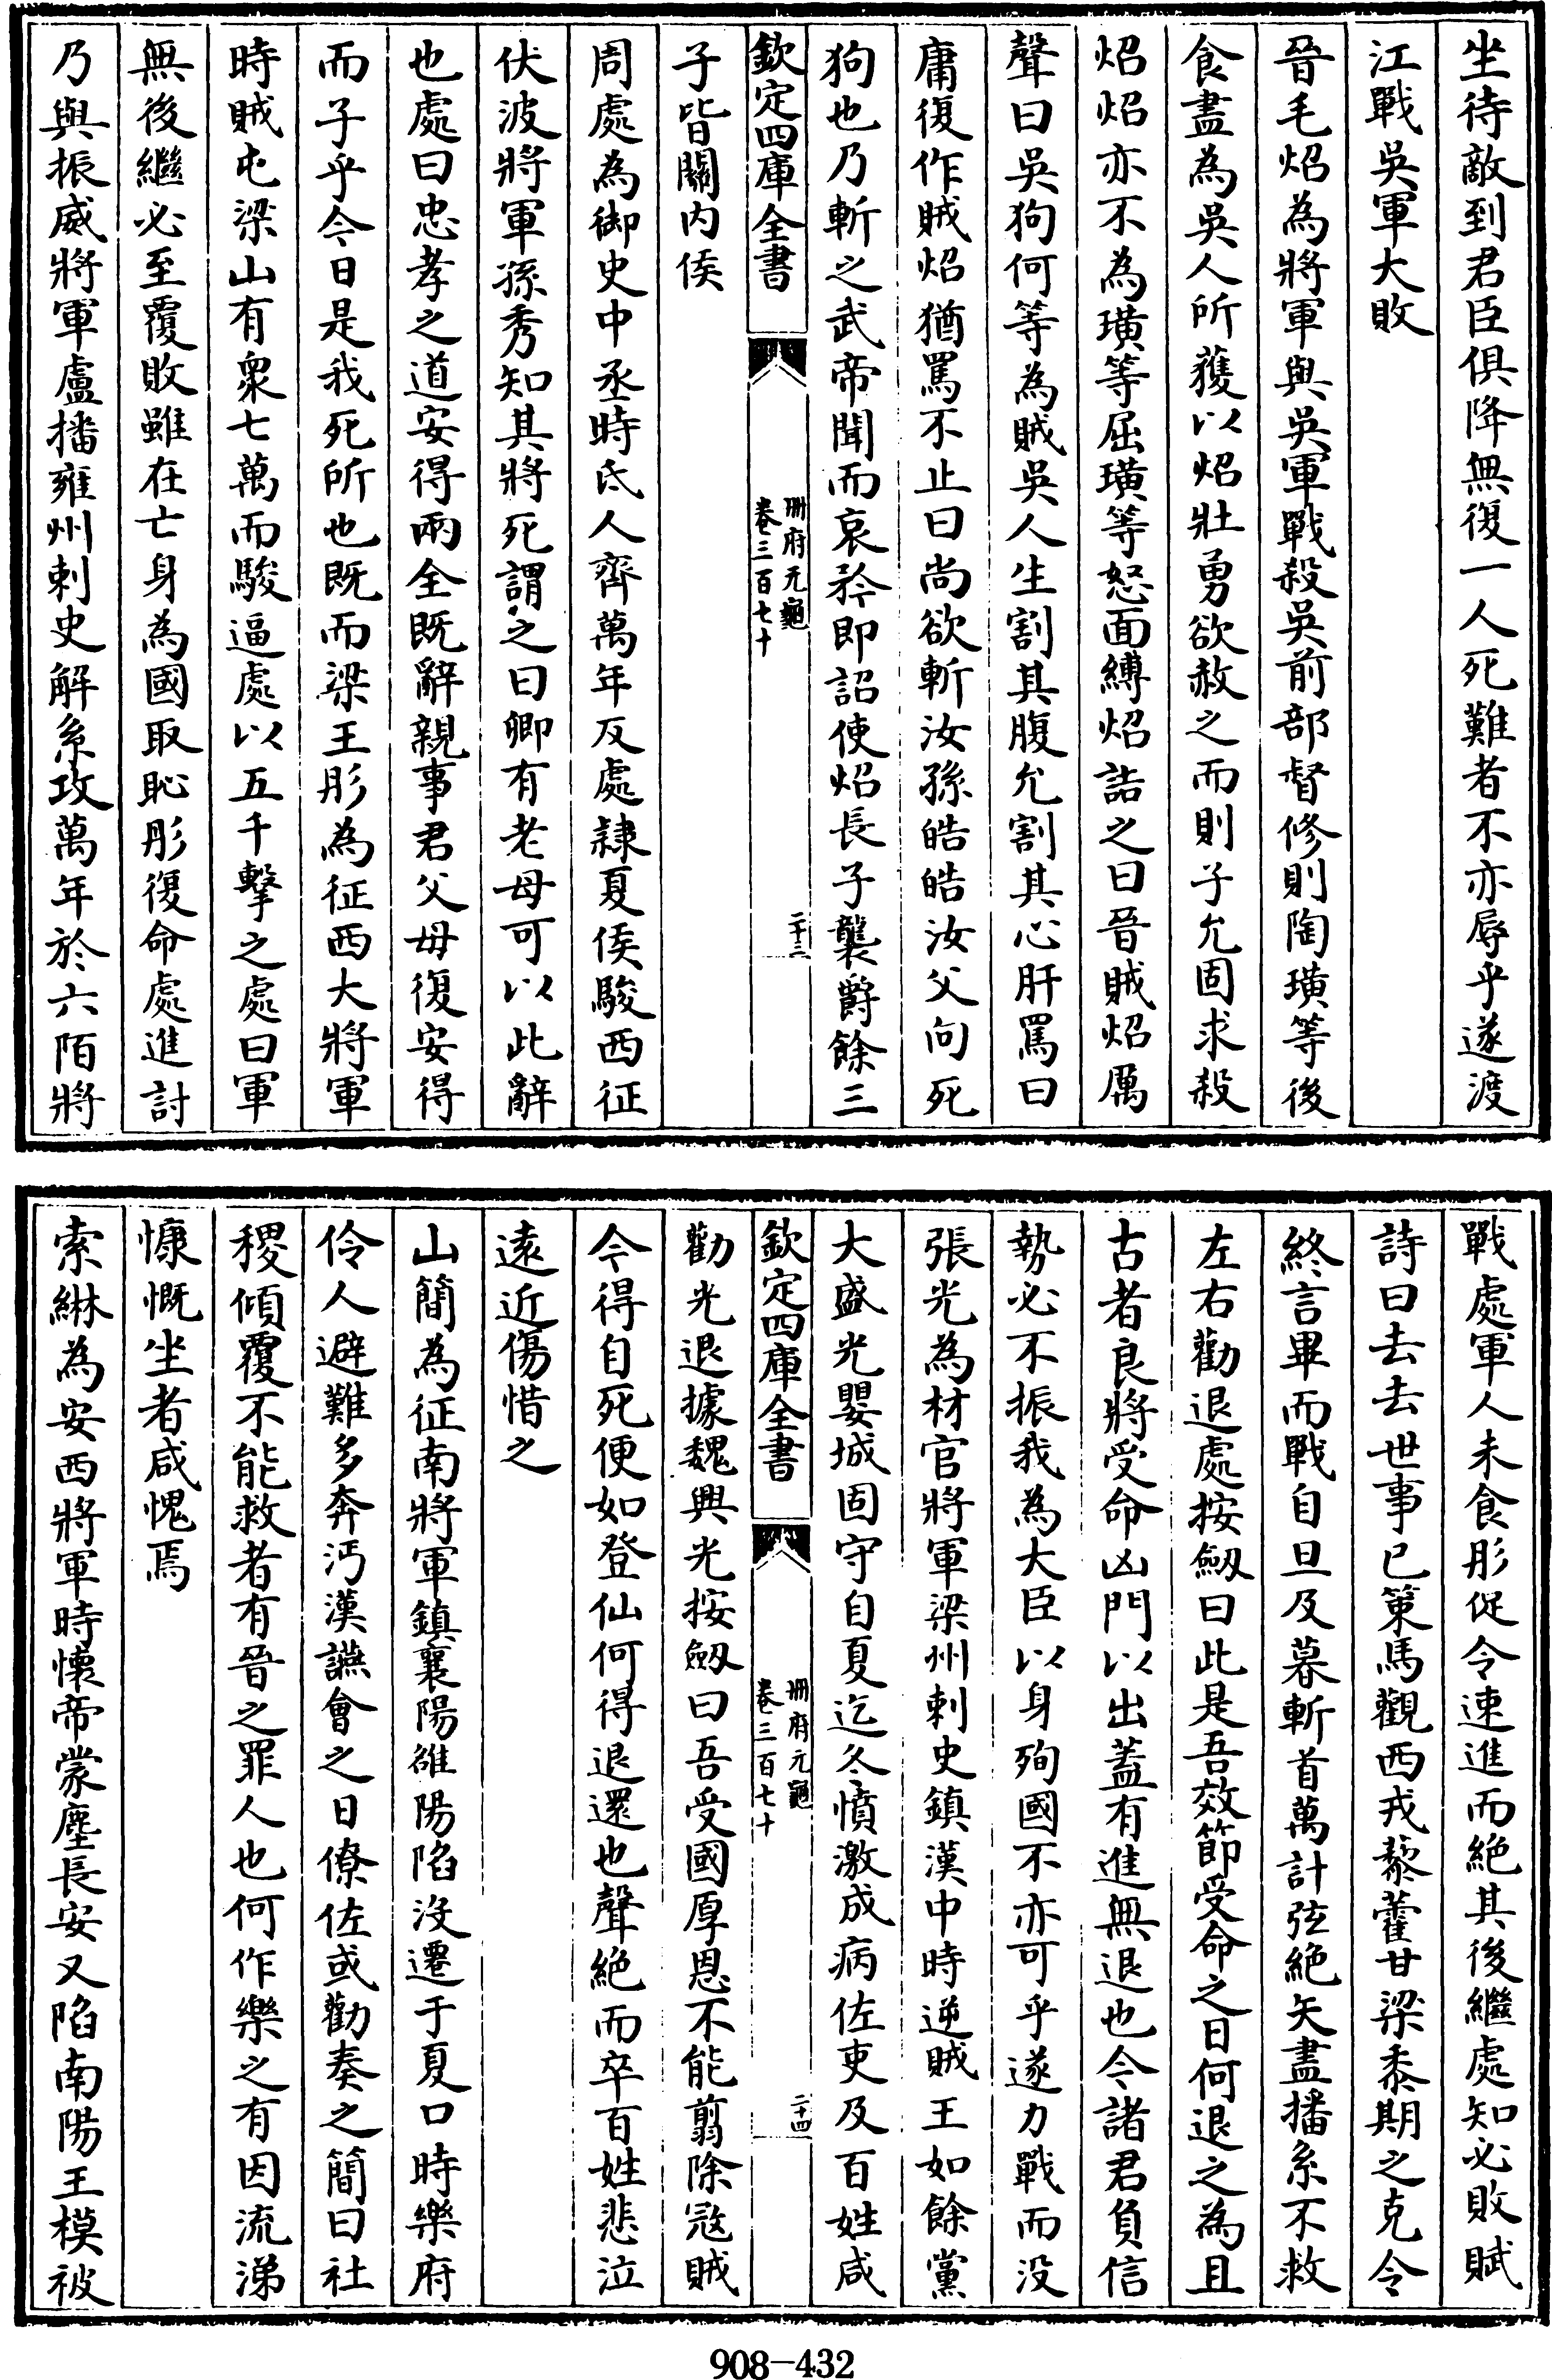 坐待敵到君臣俱降無復一人死難者不亦辱乎遂渡
江戰吳軍大敗
晉毛炤為將軍與吳軍戰殺吳前部督修則陶璜等後
食盡為吳人所獲以炤壯勇欲赦之而則子允固求殺
炤炤亦不為璜等屈璜等怒面縛炤詰之曰晉賊炤厲
聲曰吳狗何等為賊吳人生割其腹允割其心肝罵曰
庸復作賊炤猶罵不止曰尚欲斬汝孫皓皓汝父向死
狗也乃斬之武帝聞而哀矜即詔使炤長子襲爵餘三
欽定四庫全書
冊府元龜
卷三百七十
二十三
子皆關內侯
周處為御史中丞時氐人齊萬年反處隷夏侯駿西征
伏波將軍孫秀知其將死謂之曰卿有老母可以此辭
也處曰忠孝之道安得兩全既辭親事君父母復安得
而子乎今日是我死所也既而梁王肜為征西大將軍
時賊屯梁山有衆七萬而駿逼處以五千擊之處曰軍
無後繼必至覆敗雖在亡身為國取恥肜復命處進討
乃與振威將軍盧播雍州刺史解系攻萬年於六陌將
戰處軍人未食肜促令速進而絕其後繼處知必敗賦
詩曰去去世事已策馬觀西戎藜藿甘梁黍期之克令
終言畢而戰自旦及暮斬首萬計弦絕矢盡播系不救
左右勸退處按劔曰此是吾效節受命之日何退之為且
古者良將受命凶門以出蓋有進無退也今諸君負信
勢必不振我為大臣以身殉國不亦可乎遂力戰而没
張光為材官將軍梁州刺史鎮漢中時逆賊王如餘黨
大盛光嬰城固守自夏迄冬憤激成病佐吏及百姓咸
欽定四庫全書
冊府元龜
卷三百七十
二十四
勸光退據魏興光按劔曰吾受國厚恩不能翦除寇賊
今得自死便如登仙何得退還也聲絕而卒百姓悲泣
遠近傷惜之
山簡為征南將軍鎮襄陽雒陽陷沒遷于夏口時樂府
伶人避難多奔沔漢讌會之日僚佐或勸奏之簡曰社
稷傾覆不能救者有晉之罪人也何作樂之有因流涕
慷慨坐者咸愧焉
索綝為安西將軍時懷帝蒙塵長安又陷南陽王模被
908-432